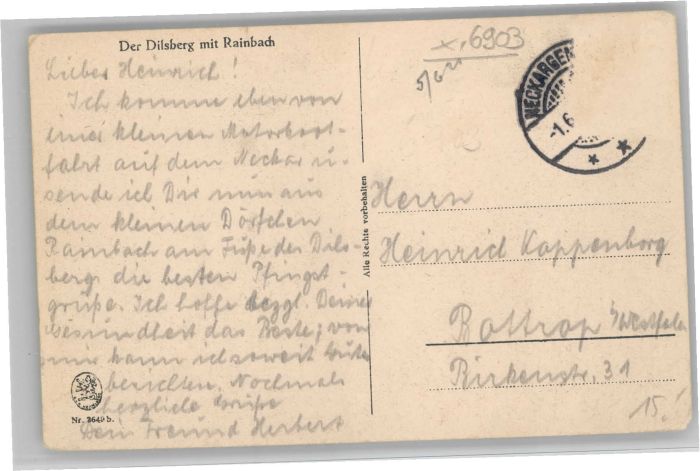 Der Dilsberg mit Rainbach
x, 6903
5/6
NECKARGEM
-1.6
* *
Lieber Heinrich!
Ich komme eben von
einer kleinen Motorboot-
fahrt auf dem Neckar u.
sende ich Dir nun aus
dem kleinen Dörfchen
Rainbach am Fuße des Dils-
bergs die besten Pfingst-
grüße. Ich hoffe bezgl. Deiner
Gesundheit das Beste; von
mir kann ich soweit Gutes
berichten. Nochmals
herzliche Grüße
Dein Freund Herbert
Nr. 2649 b.
Alle Rechte vorbehalten
Herrn
Heinrich Koppenborg
Bottrop i/Westfalen
Birkenstr. 31
15.-